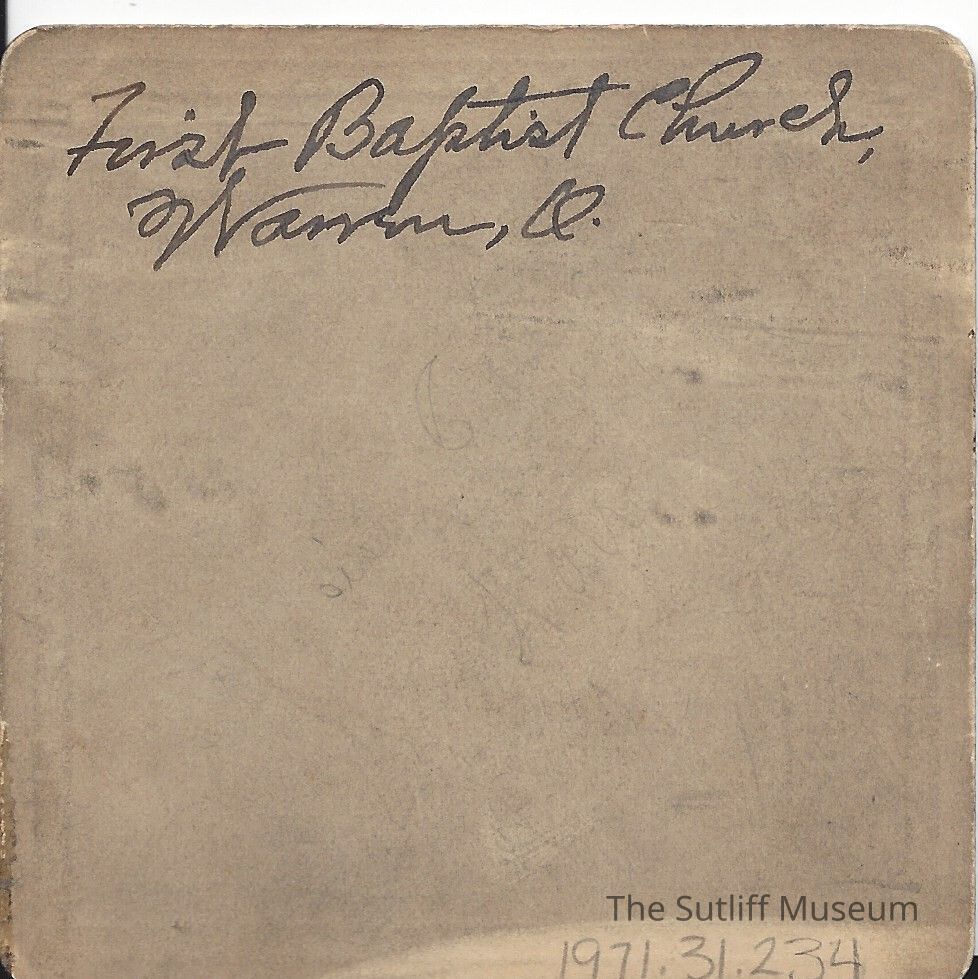 First Baptist Church,
Warren, O.
The Sutliff Museum
1971.31.234